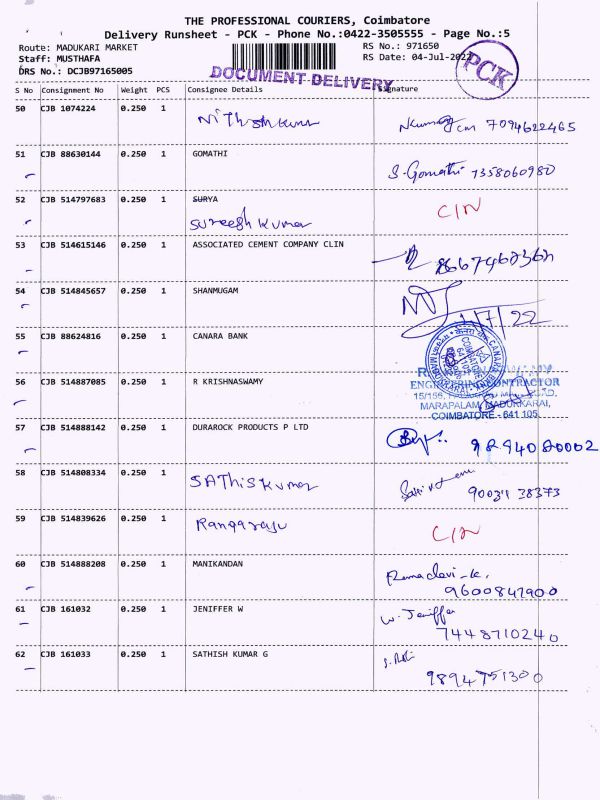 THE PROFESSIONAL COURIERS, Coimbatore
Delivery Runsheet - PCK - Phone No.:0422-3505555 - Page No.:5
Route: MADUKARI MARKET RS No.: 971650
Staff: MUSTHAFA RS Date: 04-Jul-2022
DRS No.: DCJB97165005
DOCUMENT DELIVERY
PCK
S No Consignment No Weight PCS Consignee Details Signature
50 CJB 1074224 0.250 1 Nithish kumar 7094622465
51 CJB 88630144 0.250 1 GOMATHI S. Gomathi 7358060980
52 CJB 514797683 0.250 1 SURYA C/N
Sureesh kumar
53 CJB 514615146 0.250 1 ASSOCIATED CEMENT COMPANY CLIN
54 CJB 514845657 0.250 1 SHANMUGAM
/7/22
55 CJB 88624816 0.250 1 CANARA BANK
56 CJB 514887085 0.250 1 R KRISHNASWAMY
ENGINEERING CONTRACTOR
MARAPALAM, MADUKKARAI,
COIMBATORE - 641 105
57 CJB 514888142 0.250 1 DURAROCK PRODUCTS P LTD 9894080002
58 CJB 514808334 0.250 1 SAThiskumar 90031 38373
59 CJB 514839626 0.250 1 Rangaraju C/N
60 CJB 514888208 0.250 1 MANIKANDAN Rema devi-k.
9600847900
61 CJB 161032 0.250 1 JENIFFER W W. Jeniffer
7448710240
62 CJB 161033 0.250 1 SATHISH KUMAR G
9894751300